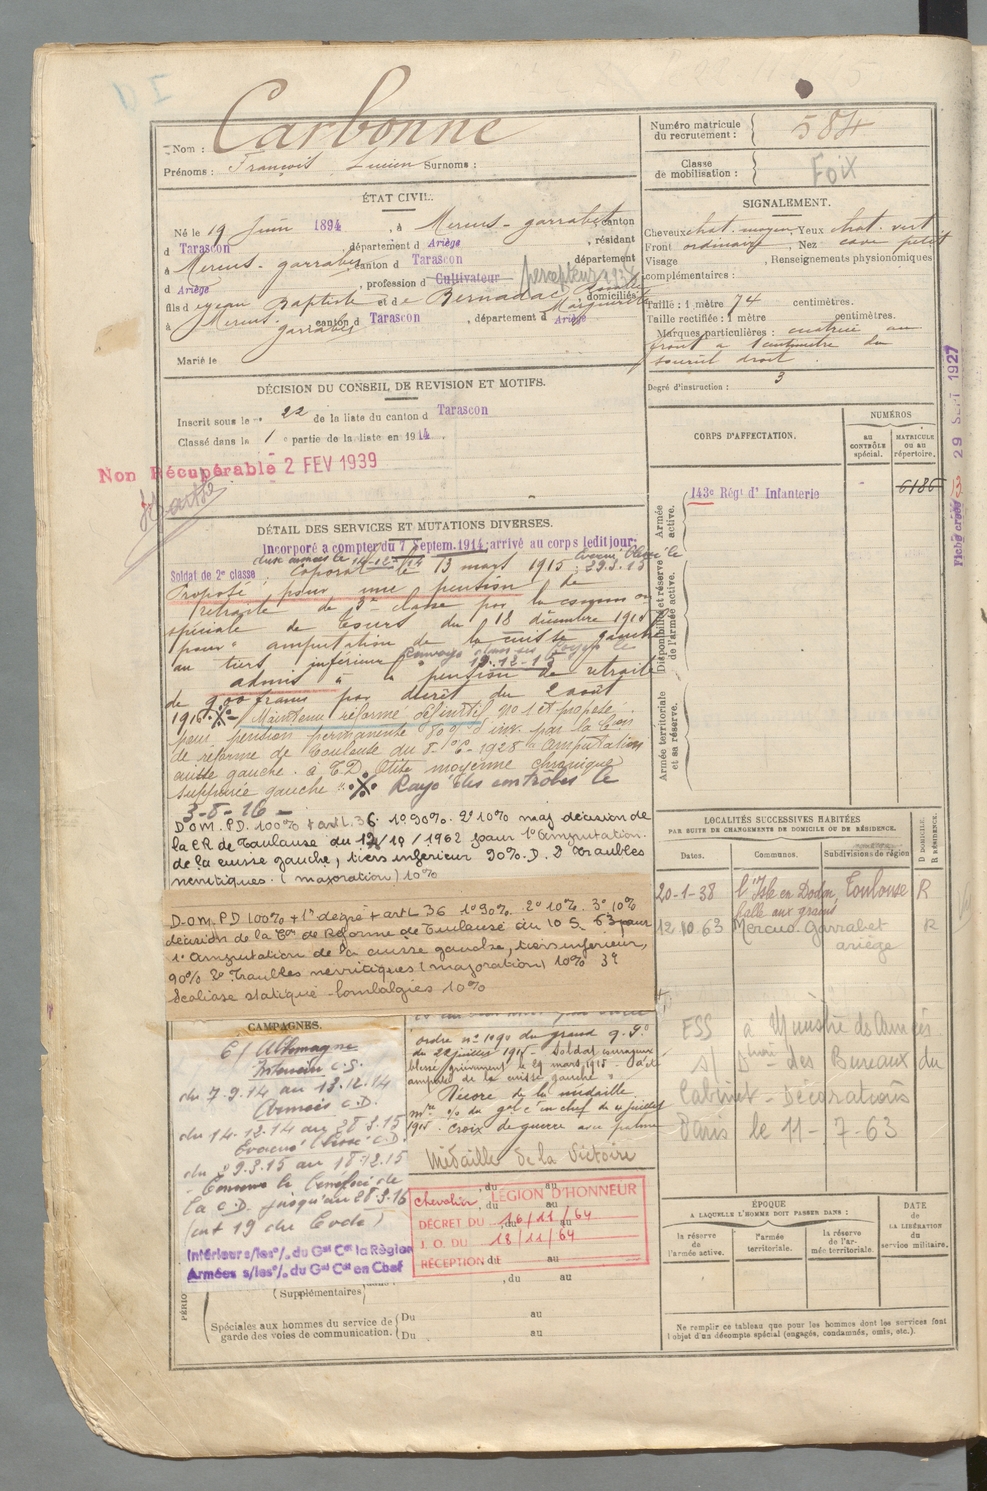 D I
Nom : Carbonne
Prénoms : François Lucien Surnoms :
Numéro matricule du recrutement : 584
Classe de mobilisation : Foix
ÉTAT CIVIL.
Né le 19 Juin 1894, à Mercus-garrabet canton
d Tarascon, département d Ariège, résidant
à Mercus-garrabet canton d Tarascon département
d Ariège, profession d Cultivateur percepteur
fils d Baptiste et de Bernadac Marguerite, domiciliés
à Mercus garrabet canton d Tarascon, département d Ariège
Marié le
SIGNALEMENT.
Cheveux chat. moyen Yeux chat. vert
Front ordinaire, Nez cave petit
Visage , Renseignements physionomiques
complémentaires :
Taille : 1 mètre 74 centimètres.
Taille rectifiée : 1 mètre centimètres.
Marques particulières : cicatrice au
front à 1 centimètre du
sourcil droit.
Degré d'instruction : 3
DÉCISION DU CONSEIL DE REVISION ET MOTIFS.
Inscrit sous le n° 22 de la liste du canton d Tarascon
Classé dans la 1 e partie de la liste en 1914.
Non Récupérable 2 FEV 1939
CORPS D'AFFECTATION.
NUMÉROS
AU CONTRÔLE spécial.
MATRICULE OU AU répertoire.
Armée active.
143e Régt d' Infanterie
6186
Disponibilité et réserve de l'armée active.
Armée territoriale et sa réserve.
Fiche créée 29 SEPT 1927
DÉTAIL DES SERVICES ET MUTATIONS DIVERSES.
Incorporé à compter du 7 Septem. 1914, arrivé au corps ledit jour;
aux armées le 14-12-14
Soldat de 2e classe. Caporal le 13 mars 1915. Evacué blessé le 29.3.15
Proposé pour une pension de
retraite de 3e classe par la common
spéciale de Tours du 18 décembre 1915
pour "amputation de la cuisse gauche
au tiers inférieur" Renvoyé dans ses foyers le
19-12-15
admis à la pension de retraite
de 900 francs par décret du 2 août
1916. Maintenu réformé définitif no 1 et proposé
pour pension permanente 80 % d'inv. par la Con
de réforme de Toulouse du 1928 Amputation
cuisse gauche. à T.D. Otite moyenne chronique
suppurée gauche. Rayé des contrôles le
3-8-16
D.O.M. P.D. 100% + art L. 36. 1° 90%. 2° 10% maj décision de
la C R de Toulouse du 12/10/1962 pour 1° amputation
de la cuisse gauche, tiers inférieur 90%. D. 2 Troubles
nevritiques. (majoration) 10%
D.O.M. P.D 100% + 1° degré + art L 36 1° 90%. 2° 10%. 3° 10%
décision de la Con de Réforme de Toulouse du 10 5 63 pour
1° amputation de la cuisse gauche, tiers inférieur,
90% 2° Troubles nevritiques (majoration) 10% 3°
Scoliose statique - lombalgies 10%
LOCALITÉS SUCCESSIVES HABITÉES
PAR SUITE DE CHANGEMENTS DE DOMICILE OU DE RÉSIDENCE.
Dates. Communes. Subdivisions de région
D DOMICILE. R RÉSIDENCE.
20-1-38 l'Isle en Dodon, Toulouse R
halle aux grains
12 10 63 Mercus. Garrabet R
ariège
ESS à Ministre des Armées
s/ Dtion des Bureaux du
Cabinet - Décorations
Paris le 11-7-63
CAMPAGNES.
C/ Allemagne
Intérieur C.S.
du 7.9.14 au 13.12.14
Armées C.D.
du 14-12-14 au 28.3.15
Evacué (blessé) C.D.
du 29.3.15 au 18.12.15
Conserve le bénéfice de
la C.D. jusqu'au 28.3.16
(art 19 du Code)
Intérieur s/les % du Gal Ct la Région
Armées s/les % du Gal Ct en Chef
ordre n° 1090 du grand q. gl
du 22 juillet 1915 - Soldat courageux
blessé grièvement le 29 mars 1915. A été
amputé de la cuisse gauche"
Décoré de la médaille
mre % du gal Ct en chef du juillet
1915. Croix de guerre avec palme
Médaille de la Victoire
du au
Chevalier LÉGION D'HONNEUR
DÉCRET DU 16/11/64
J. O. DU 18/11/64
RÉCEPTION
du au
(Supplémentaires)
, du au
Spéciales aux hommes du service de garde des voies de communication.
Du au
Du au
ÉPOQUE
A LAQUELLE L'HOMME DOIT PASSER DANS :
la réserve de l'armée active.
l'armée territoriale.
la réserve de l'armée territoriale.
DATE de LA LIBÉRATION du service militaire.
Ne remplir ce tableau que pour les hommes dont les services font
l'objet d'un décompte spécial (engagés, condamnés, omis, etc.).